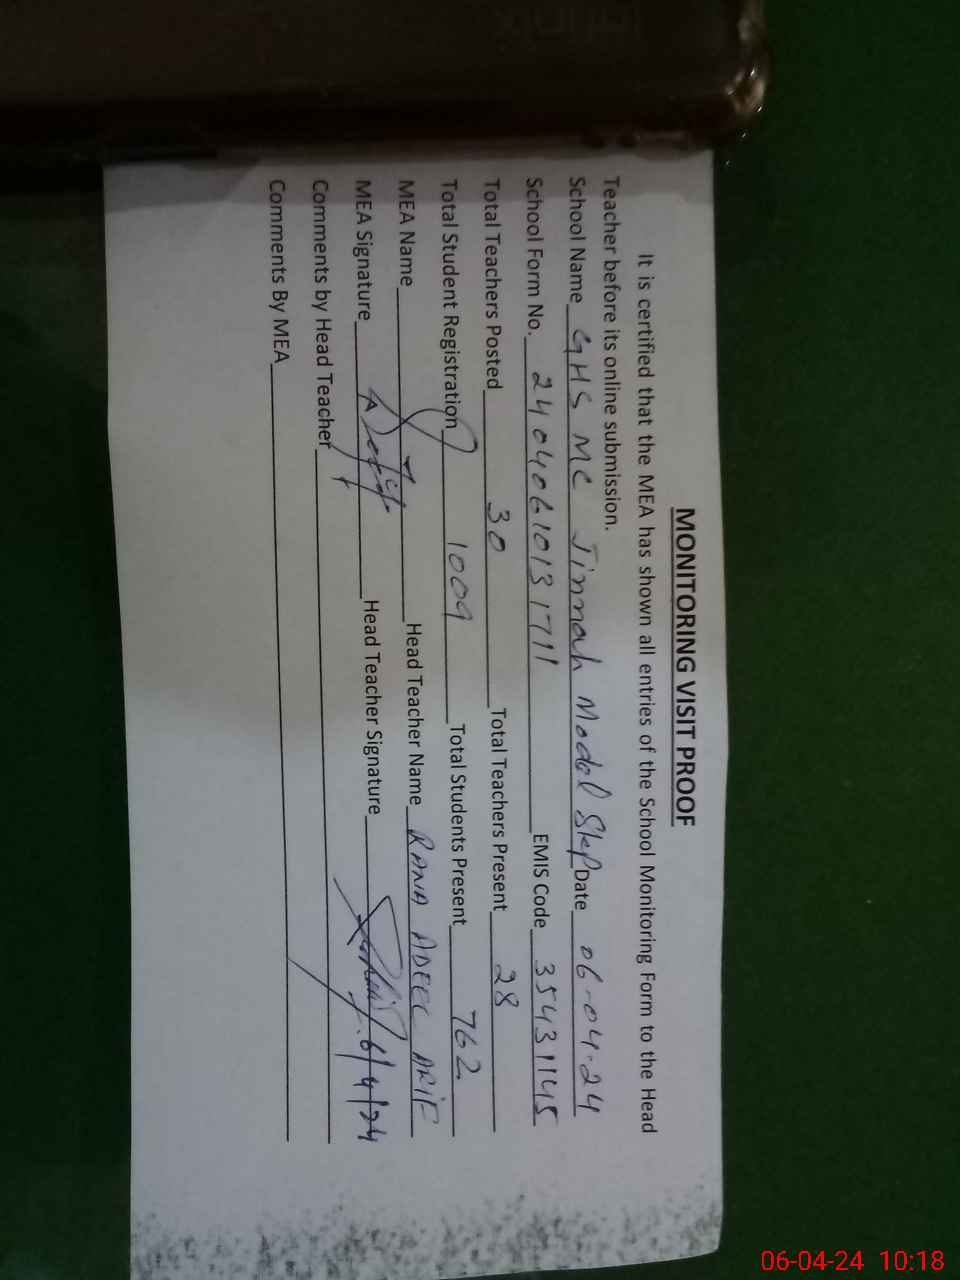 MONITORING VISIT PROOF
It is certified that the MEA has shown all entries of the School Monitoring Form to the Head
Teacher before its online submission.
School Name GHS MC Jinnah Model Skp Date 06-04-24
School Form No. 24040610131711 EMIS Code 35431145
Total Teachers Posted 30 Total Teachers Present 28
Total Student Registration 1009 Total Students Present 762
MEA Name Head Teacher Name RANA ADEEL ARIF
MEA Signature Head Teacher Signature 6/4/24
Comments by Head Teacher
Comments By MEA
06-04-24 10:18